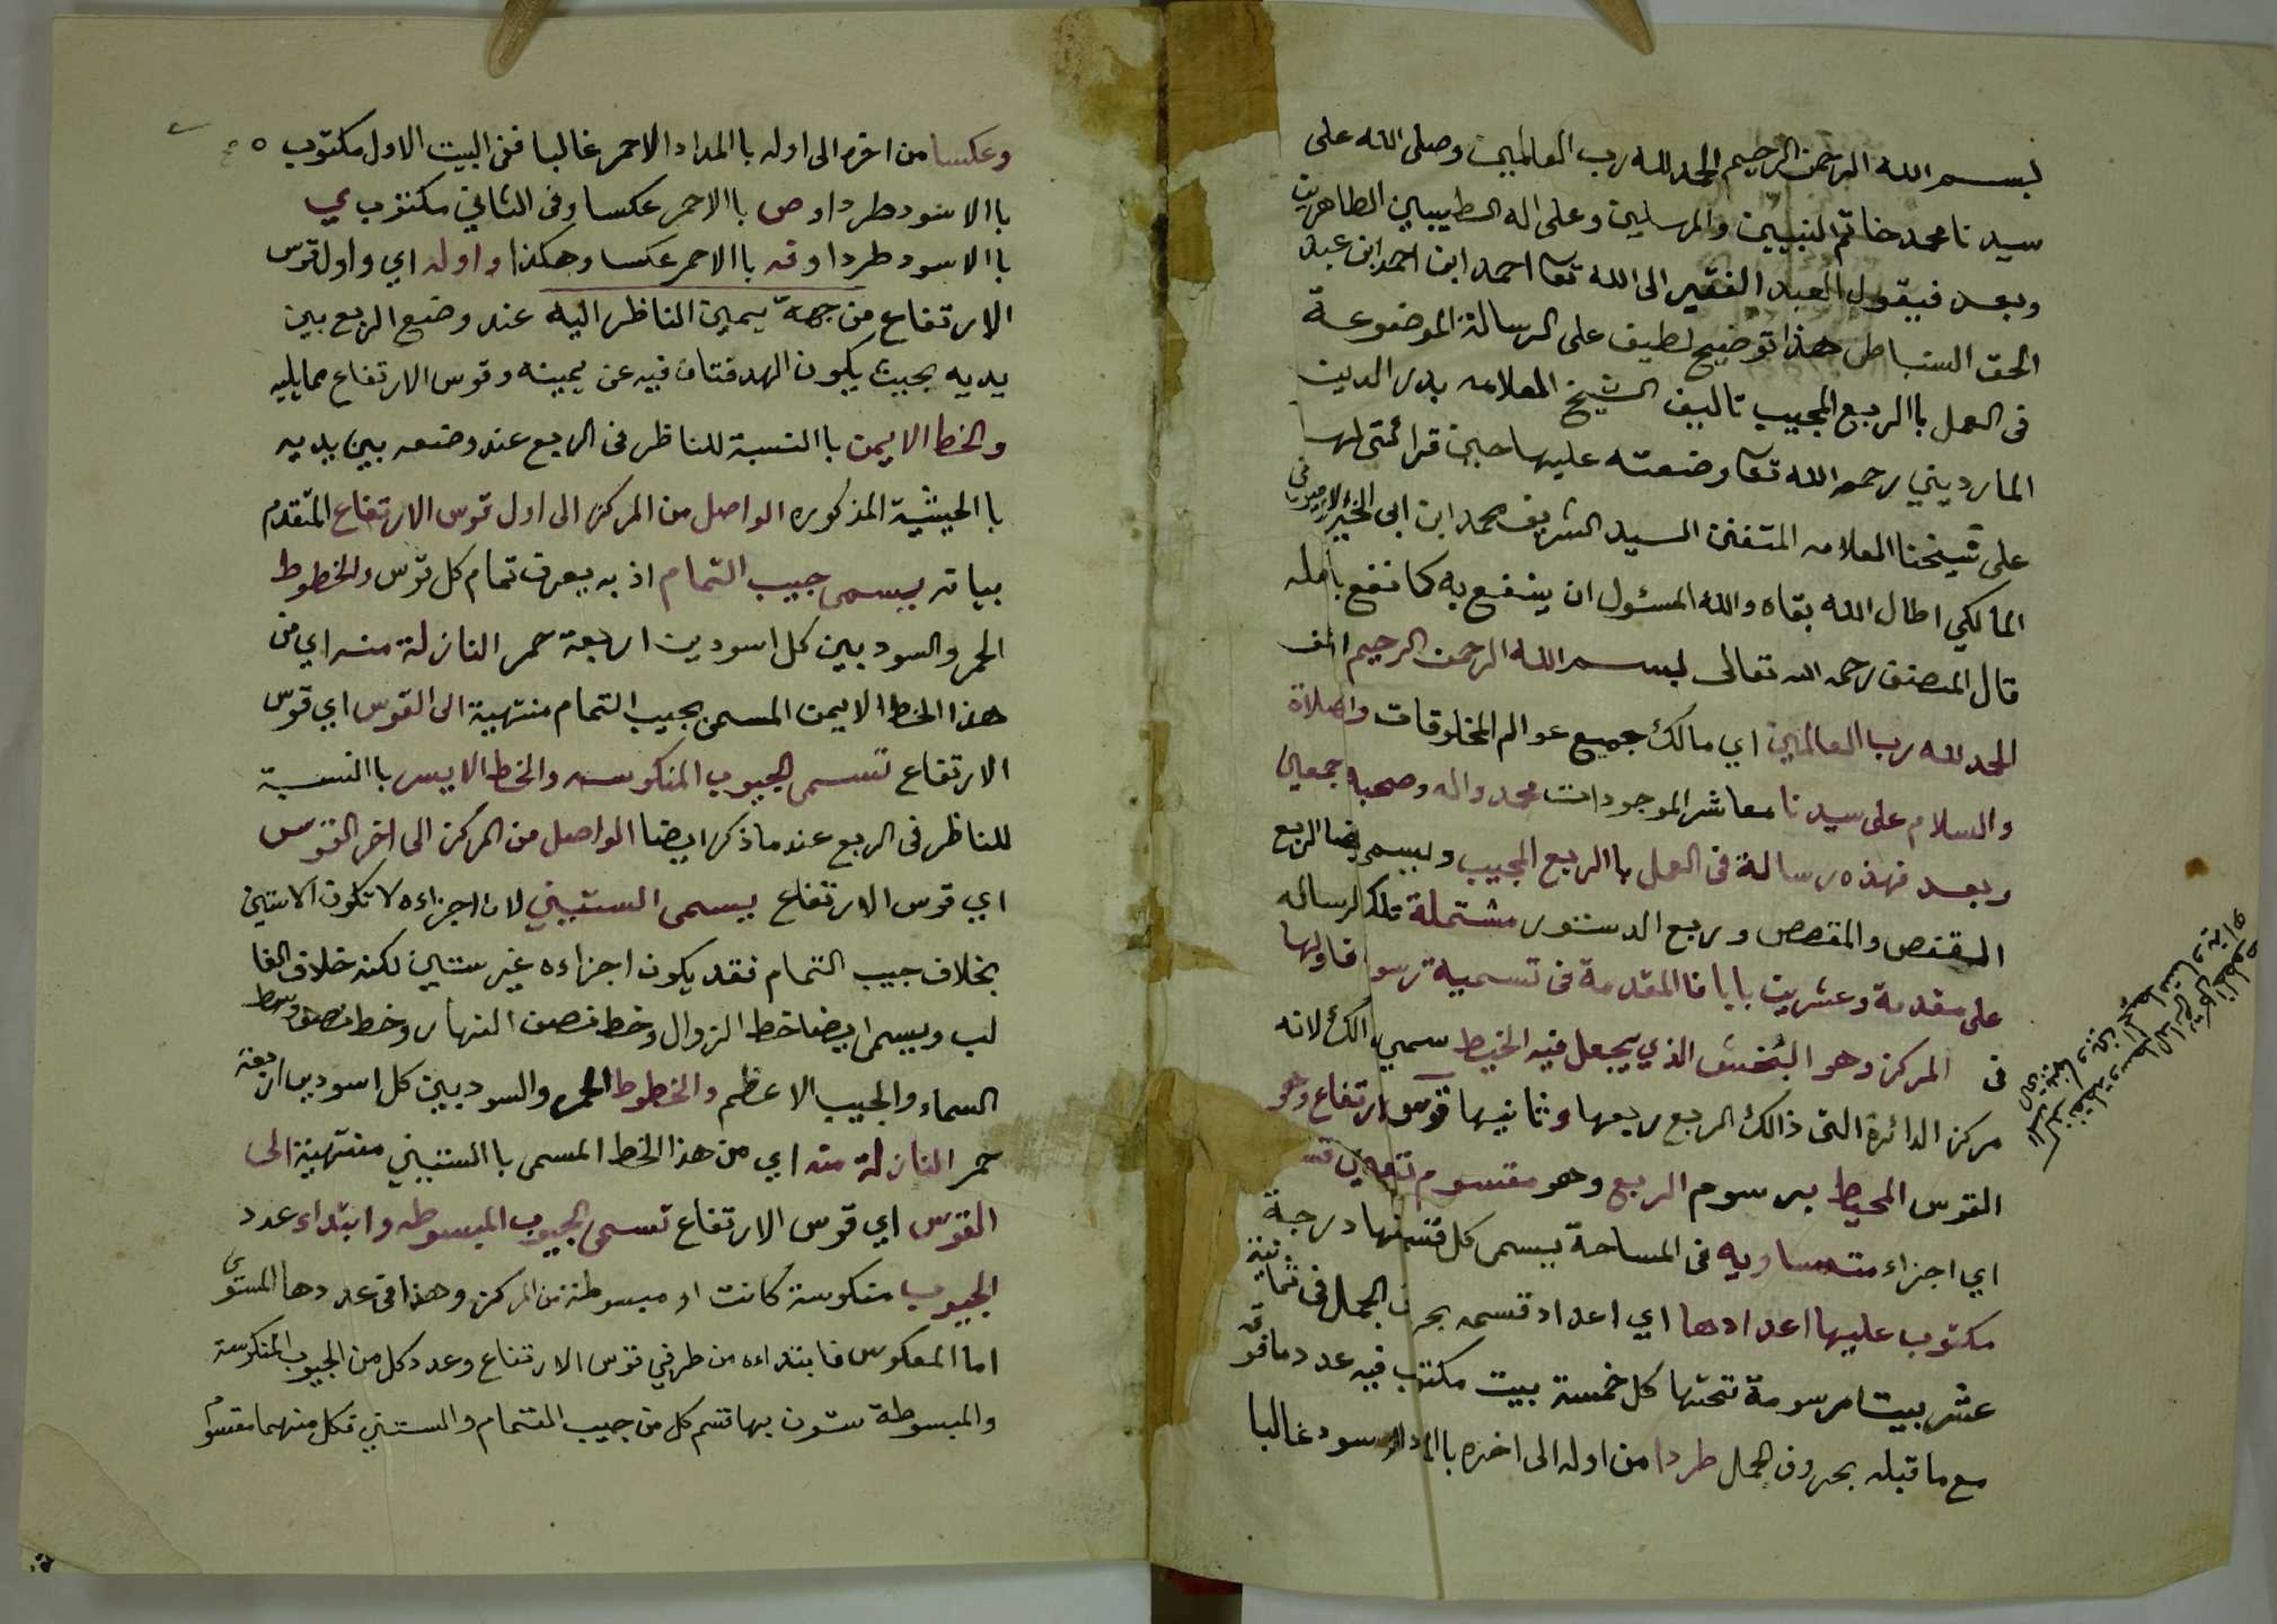 بسم الله الرحمن الرحيم الحمد لله رب العالمين وصلى الله على
سيدنا محمد خاتم النبيين والمرسلين وعلى اله الطيبيين الطاهرين
وبعد فيقول العبد الفقير الى الله تعا احمد ابن احمد ابن عبد
الحق السنباطي هذا توضيح لطيف على الرسالة الموضوعة
فى العمل باالربع المجيب تاليف الشيخ العلامه بدر الدين
المارديني رحمه الله تعا وضعته عليها حين قرائتى لها
على شيخنا العلامه المتفنن السيد الشريف محمد ابن ابى الخير الارميونى
المالكي اطال الله بقاه والله المسئول ان ينفع به كما نفع باصله
قال المصنف رحمه الله تعالى بسم الله الرحمن الرحيم
الحمد لله رب العالمين اي مالك جميع عوالم المخلوقات والصلاة
والسلام على سيدنا معاشر الموجودات محمد واله وصحبه اجمعين
وبعد فهذه رسالة فى العمل باالربع المجيب ويسمى ايضا الربع
المقنص والمقصص وربع الدستور مشتملة تلك الرساله
على مقدمة وعشرين بابا فالمقدمة فى تسمية رسو فاولها
فى المركز وهو البُخش الذي يجعل فيه الخيط سمي ذالك لانه
مركز الدائرة التى ذالك الربع ربعها وثانيها قوس ارتفاع وهو
القوس المحيط برسوم الربع وهو مقسوم تسعين قسـ
اي اجزاء متساويه فى المساحة يسمى كل قسم منها درجة
مكتوب عليها اعدادها اي اعداد قسمه بحروف الجمل فى ثمانية
عشر بيتا مرسومة تحتها كل خمسة بيت مكتوب فيه عدد مافوقه
مع ماقبله بحروف الجمل طردا من اوله الى اخره باالمداد الاسود غالبا
وعكسا من اخره الى اوله باالمداد الاحمر غالبا ففى البيت الاول مكتوب ه
باالاسود طردا وص باالاحمر عكسا وفى الثاني مكتوب ي
باالاسود طردا وفه باالاحمر عكسا وهكذا واوله اي واول قوس
الارتفاع من جهة يمين الناظر اليه عند وضع الربع بين
يديه بحيث يكون الهدفتان فيه عن يمينه وقوس الارتفاع ممايليه
والخط الايمن باالنسبة للناظر فى الربع عند وضعه بين يديه
باالحيثية المذكوره الواصل من المركز الى اول قوس الارتفاع المتقدم
بيانه يسمى جيب التمام اذ به يعرف تمام كل قوس والخطوط
الحمر والسود بين كل اسودين اربعة حمر النازلة منه اي من
هذا الخط الايمن المسمى بجيب التمام منتهية الى القوس اي قوس
الارتفاع تسمى الجيوب المنكوسه والخط الايسر باالنسبة
للناظر فى الربع عند ماذكر ايضا الواصل من المركز الى اخر القوس
اي قوس الارتفاع يسمى الستيني لان اجزاءه لاتكون الاستين
بخلاف جيب التمام فقد يكون اجزاءه غير ستين لكنه خلاف الغا
لب ويسمى ايضا خط الزوال وخط نصف النهار وخط نصف وسط
السماء والجيب الاعظم والخطوط الحمر والسود بين كل اسودين اربعة
حمر النازلة منه اي من هذا الخط المسمى باالستيني منتهية الى
القوس اي قوس الارتفاع تسمى الجيوب المبسوطه وابتداء عدد
الجيوب منكوسة كانت او مبسوطة من المركز وهذا فى عددها المستوى
اما المعكوس فابتداءه من طرفي قوس الارتفاع وعدد كل من الجيوب المنكوسة
والمبسوطة ستون بها قسم كل من جيب التمام والستيني فكل منهما مقسوم